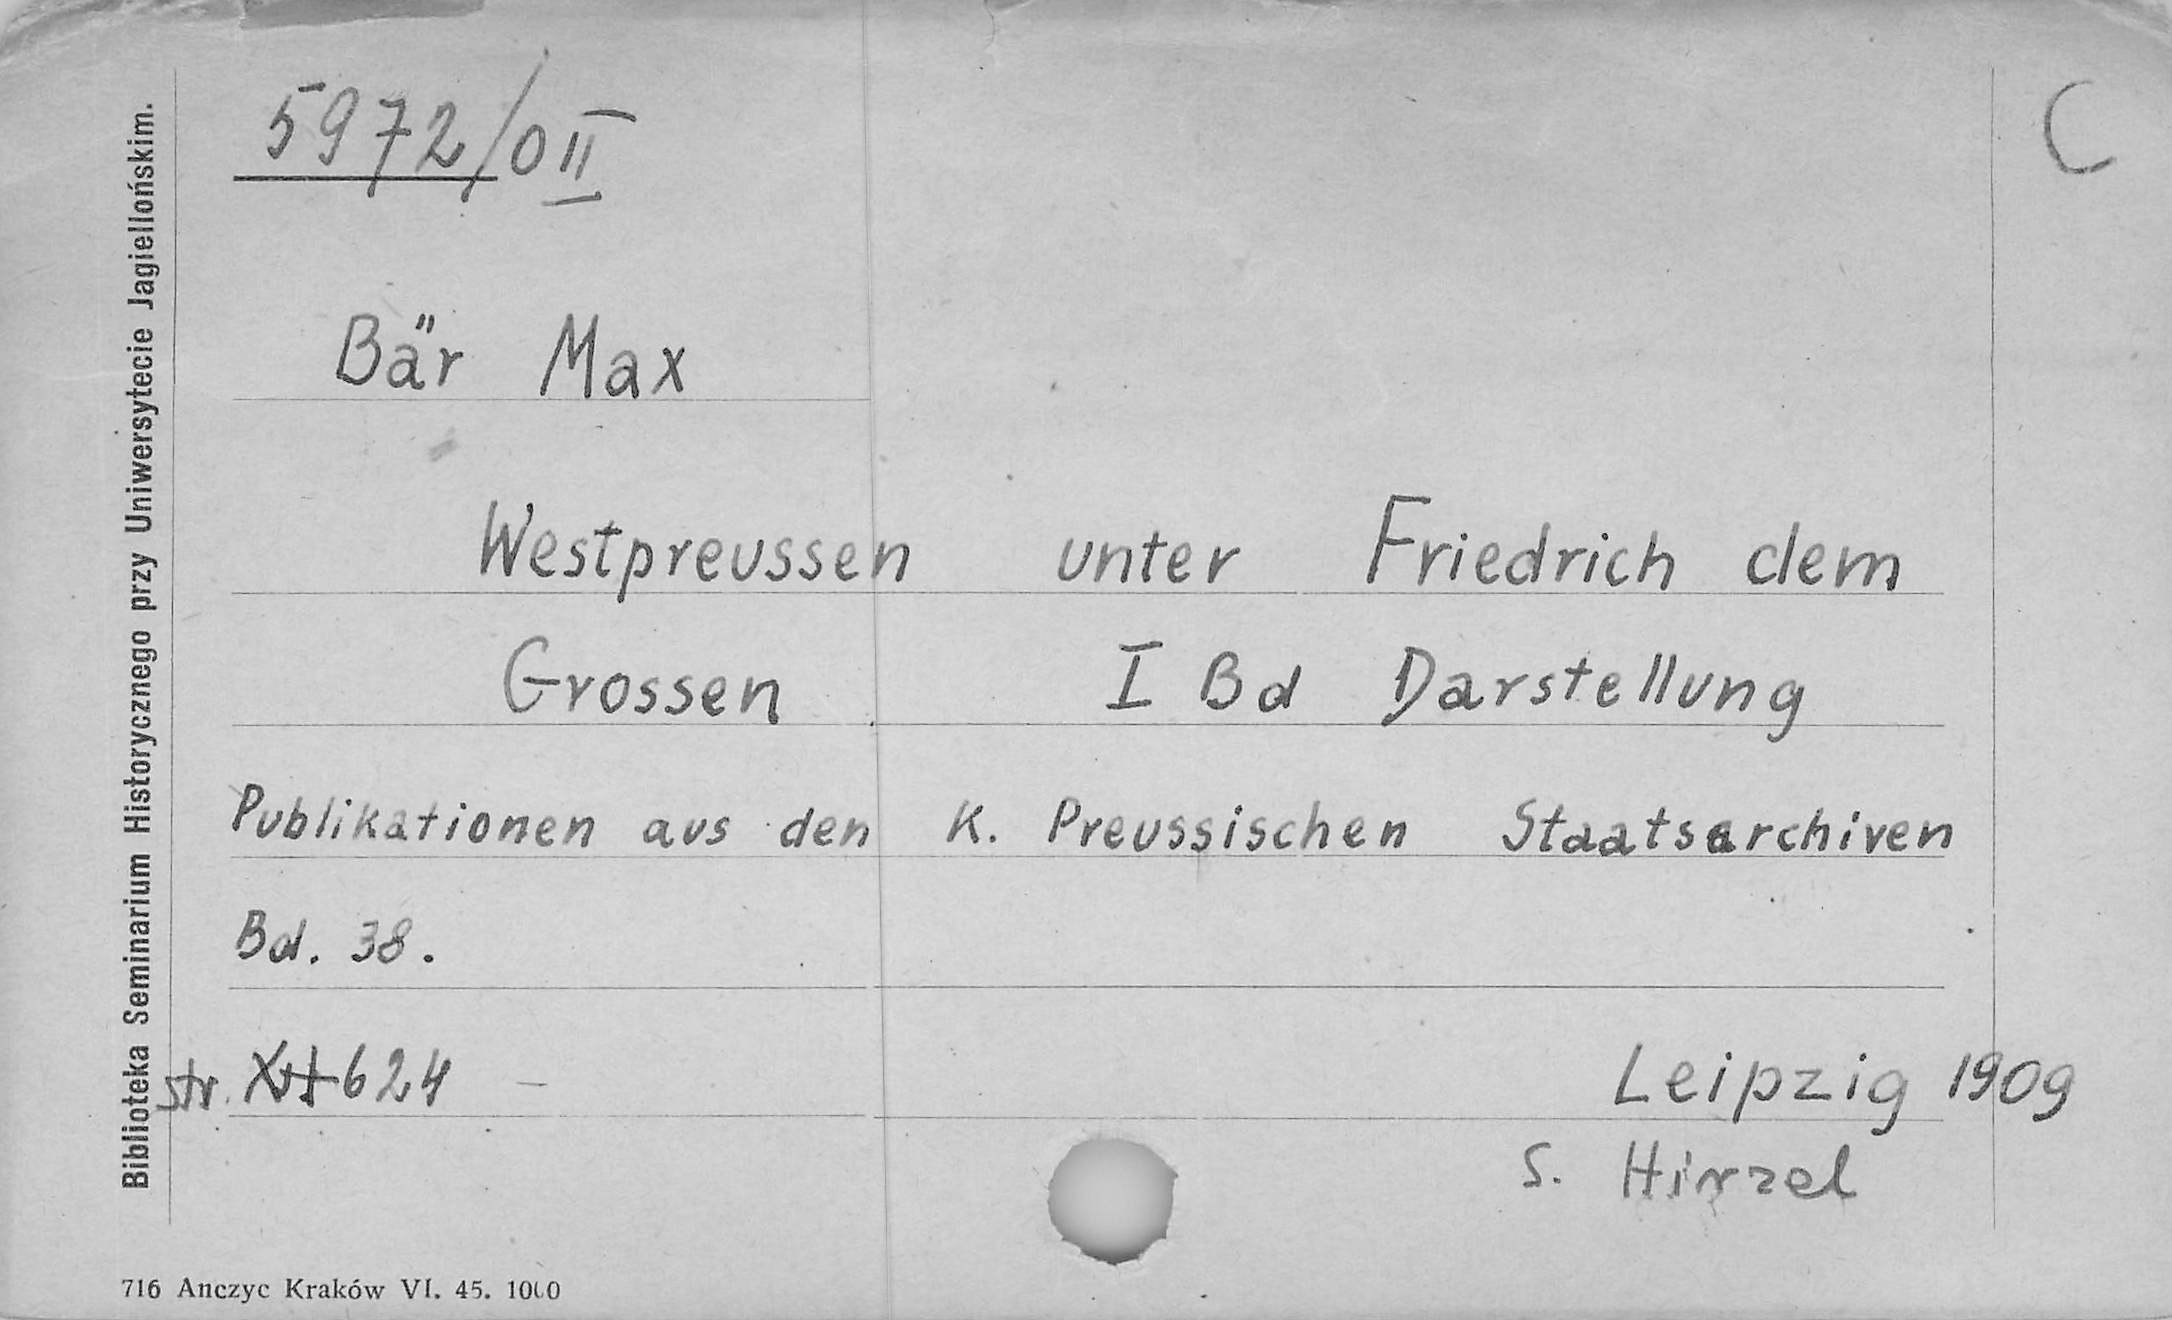 5972/0 II
C
Bär Max
Westpreussen unter Friedrich dem
Grossen I Bd Darstellung
Publikationen aus den K. Preussischen Staatsarchiven
Bd. 38.
str. 624 — Leipzig 1909
S. Hirzel
Biblioteka Seminarium Historycznego przy Uniwersytecie Jagiellońskim.
716 Anczyc Kraków VI. 45. 1000